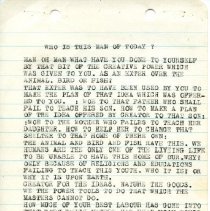 WHO IS THIS MAN OF TODAY ?
MAN OH MAN WHAT HAVE YOU DONE TO YOURSELF
BY THAT BIT OF THE CREATIVE POWER WHICH
WAS GIVEN TO YOU, AS AN EXTER OVER THE
ANIMAL, BIRD OR FISH?
THAT EXTER WAS TO HAVE BEEN USED BY YOU TO
MAKE THE PLAN OF THAT IDEA WHICH WAS OFFER-
ED TO YOU. ; WOE TO THAT FATHER WHO SHALL
FAIL TO TEACH HIS SON, HOW TO MAKE A PLAN
OF THE IDEA OFFERED BY CREATOR TO THAT SON;
;WOE TO THE MOTHER WHO FAILES TO TEACH HER
DAUGHTER, HOW TO HELP HER TO CHANGE THAT
SHELTER TO THAT HOME OF THEIR OWN;
THE ANIMAL AND BIRD AND FISH HAVE THIS, WE
HUMANS ARE THE ONLY ONE OF THE LIVING LIFE
TO BE UNABLE TO HAVE THIS HOME OF OUR,WHY?
ONLY BECAUSE OF RELIGIONS AND EDUCATIONS
FAILING TO TEACH THIS YOUTH. WHO IT IS? OR
WHY IT IS UPON EARTH,
CREATOR FOR THE IDEAS, NATURE THE GOODS,
WE THE POWER TOOLS TO DO THAT WHICH THE
MASTERS CANNOT DO.
HOW MUCH OF YOUR BEST LABOUR HAS GONE INTO